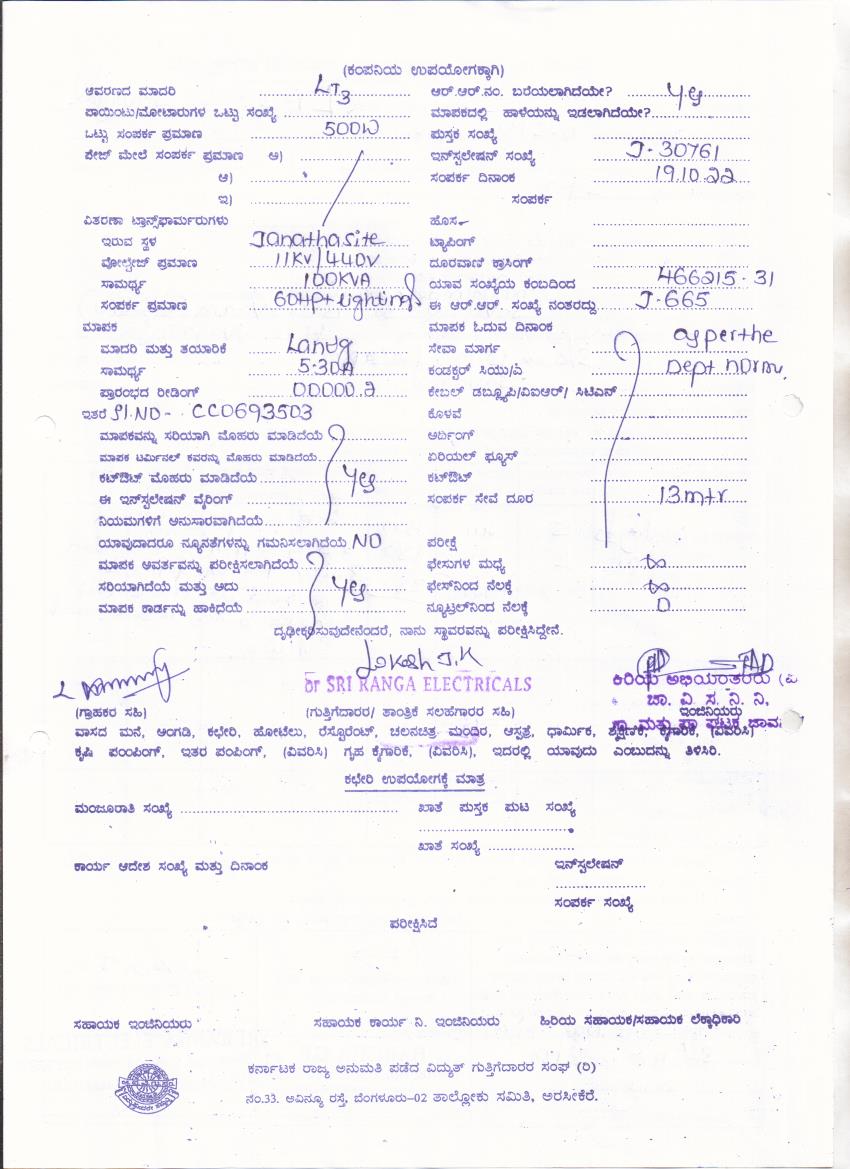 (ಕಂಪನಿಯ ಉಪಯೋಗಕ್ಕಾಗಿ)
ಆವರಣದ ಮಾದರಿ LT3 ಆರ್.ಆರ್.ನಂ. ಬರೆಯಲಾಗಿದೆಯೇ? yes
ಪಾಯಿಂಟು/ಮೋಟಾರುಗಳ ಒಟ್ಟು ಸಂಖ್ಯೆ ಮಾಪಕದಲ್ಲಿ ಹಾಳೆಯನ್ನು ಇಡಲಾಗಿದೆಯೇ?
ಒಟ್ಟು ಸಂಪರ್ಕ ಪ್ರಮಾಣ 500W ಪುಸ್ತಕ ಸಂಖ್ಯೆ
ಪೇಜ್ ಮೇಲೆ ಸಂಪರ್ಕ ಪ್ರಮಾಣ ಅ) ಇನ್‌ಸ್ಟಲೇಷನ್ ಸಂಖ್ಯೆ J-30761
ಆ) ಸಂಪರ್ಕ ದಿನಾಂಕ 19.10.22
ಇ) ಸಂಪರ್ಕ
ವಿತರಣಾ ಟ್ರಾನ್ಸ್‌ಫಾರ್ಮರುಗಳು ಹೊಸ
ಇರುವ ಸ್ಥಳ Janatha site ಟ್ಯಾಪಿಂಗ್
ವೋಲ್ಟೇಜ್ ಪ್ರಮಾಣ 11KV/440V ದೂರವಾಣಿ ಕ್ರಾಸಿಂಗ್
ಸಾಮರ್ಥ್ಯ 100KVA ಯಾವ ಸಂಖ್ಯೆಯ ಕಂಬದಿಂದ 466215-31
ಸಂಪರ್ಕ ಪ್ರಮಾಣ 60HP+lightings ಈ ಆರ್.ಆರ್. ಸಂಖ್ಯೆ ನಂತರದ್ದು J-665
ಮಾಪಕ ಮಾಪಕ ಓದುವ ದಿನಾಂಕ
ಮಾದರಿ ಮತ್ತು ತಯಾರಿಕೆ ಸೇವಾ ಮಾರ್ಗ as per the
ಸಾಮರ್ಥ್ಯ 5-30A ಕಂಡಕ್ಟರ್ ಸಿಯು/ಎ Dept. norm.
ಪ್ರಾರಂಭದ ರೀಡಿಂಗ್ 00000.2 ಕೇಬಲ್ ಡಬ್ಲ್ಯೂಪಿ/ವಿಐಆರ್/ ಸಿಟಿಎನ್
ಇತರೆ Sl.NO- CC0693503 ಕೊಳವೆ
ಮಾಪಕವನ್ನು ಸರಿಯಾಗಿ ಮೊಹರು ಮಾಡಿದೆಯೆ ಅರ್ದಿಂಗ್
ಮಾಪಕ ಟರ್ಮಿನಲ್ ಕವರನ್ನು ಮೊಹರು ಮಾಡಿದೆಯೆ. ಏರಿಯಲ್ ಫ್ಯೂಸ್
ಕಟ್‌ಔಟ್ ಮೊಹರು ಮಾಡಿದೆಯೆ yes ಕಟ್‌ಔಟ್
ಈ ಇನ್‌ಸ್ಟಲೇಷನ್ ವೈರಿಂಗ್ ಸಂಪರ್ಕ ಸೇವೆ ದೂರ 13mtr
ನಿಯಮಗಳಿಗೆ ಅನುಸಾರವಾಗಿದೆಯೆ
ಯಾವುದಾದರೂ ನ್ಯೂನತೆಗಳನ್ನು ಗಮನಿಸಲಾಗಿದೆಯೆ NO ಪರೀಕ್ಷೆ
ಮಾಪಕ ಅವರ್ತವನ್ನು ಪರೀಕ್ಷಿಸಲಾಗಿದೆಯೆ ಫೇಸುಗಳ ಮಧ್ಯೆ ∞
ಸರಿಯಾಗಿದೆಯೆ ಮತ್ತು ಅದು yes ಫೇಸ್‌ನಿಂದ ನೆಲಕ್ಕೆ ∞
ಮಾಪಕ ಕಾರ್ಡನ್ನು ಹಾಕಿಧೆಯೆ ನ್ಯೂಟ್ರಲ್‌ನಿಂದ ನೆಲಕ್ಕೆ 0
ದೃಢೀಕರಿಸುವುದೇನೆಂದರೆ, ನಾನು ಸ್ಥಾವರವನ್ನು ಪರೀಕ್ಷಿಸಿದ್ದೇನೆ.
Lokesh J.K
or SRI RANGA ELECTRICALS ಕಿರಿಯ ಅಭಿಯಂತರರು (ವಿ
ಚಾ. ವಿ. ಸ. ನಿ. ನಿ,
(ಗ್ರಾಹಕರ ಸಹಿ) (ಗುತ್ತಿಗೆದಾರರ/ ತಾಂತ್ರಿಕ ಸಲಹೆಗಾರರ ಸಹಿ) ಇಂಜಿನಿಯರು
ವಾಸದ ಮನೆ, ಅಂಗಡಿ, ಕಛೇರಿ, ಹೋಟೆಲು, ರೆಸ್ಟೊರೆಂಟ್, ಚಲನಚಿತ್ರ ಮಂದಿರ, ಆಸ್ಪತ್ರೆ, ಧಾರ್ಮಿಕ, ಶೈಕ್ಷಣಿಕ, ಕೈಗಾರಿಕೆ, (ವಿವರಿಸಿ)
ಕೃಷಿ ಪಂಪಿಂಗ್, ಇತರ ಪಂಪಿಂಗ್, (ವಿವರಿಸಿ) ಗೃಹ ಕೈಗಾರಿಕೆ, (ವಿವರಿಸಿ), ಇದರಲ್ಲಿ ಯಾವುದು ಎಂಬುದನ್ನು ತಿಳಿಸಿರಿ.
ಕಛೇರಿ ಉಪಯೋಗಕ್ಕೆ ಮಾತ್ರ
ಮಂಜೂರಾತಿ ಸಂಖ್ಯೆ ಖಾತೆ ಪುಸ್ತಕ ಪುಟ ಸಂಖ್ಯೆ
ಖಾತೆ ಸಂಖ್ಯೆ
ಕಾರ್ಯ ಆದೇಶ ಸಂಖ್ಯೆ ಮತ್ತು ದಿನಾಂಕ ಇನ್‌ಸ್ಟಲೇಷನ್
ಸಂಪರ್ಕ ಸಂಖ್ಯೆ
ಪರೀಕ್ಷಿಸಿದೆ
ಸಹಾಯಕ ಇಂಜಿನಿಯರು ಸಹಾಯಕ ಕಾರ್ಯ ನಿ. ಇಂಜಿನಿಯರು ಹಿರಿಯ ಸಹಾಯಕ/ಸಹಾಯಕ ಲೆಕ್ಕಾಧಿಕಾರಿ
ಕರ್ನಾಟಕ ರಾಜ್ಯ ಅನುಮತಿ ಪಡೆದ ವಿದ್ಯುತ್ ಗುತ್ತಿಗೆದಾರರ ಸಂಘ (ರಿ)
ನಂ.33. ಅವಿನ್ಯೂ ರಸ್ತೆ, ಬೆಂಗಳೂರು-02 ತಾಲ್ಲೋಕು ಸಮಿತಿ, ಅರಸೀಕೆರೆ.